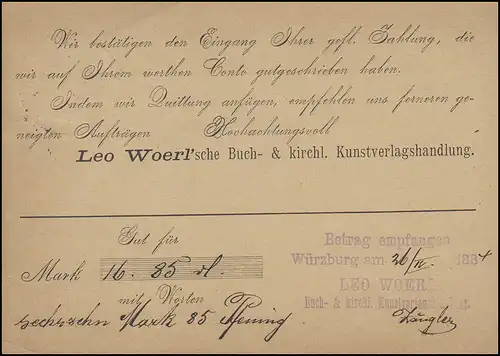 Wir bestätigen den Eingang Ihrer gefl. Zahlung, die
wir auf Ihrem werthen Conto gutgeschrieben haben.
Indem wir Quittung anfügen, empfehlen uns ferneren ge-
neigten Aufträgen Hochachtungsvoll
Leo Woerl'sche Buch- & kirchl. Kunstverlagshandlung.
Gut für
Mark 16. 85 d.
mit Worten
sechszehn Mark 85 Pfennig
Betrag empfangen
Würzburg am 26/IV. 1884
LEO WOERL
Buch- & kirchl. Kunstverlagshandlung.